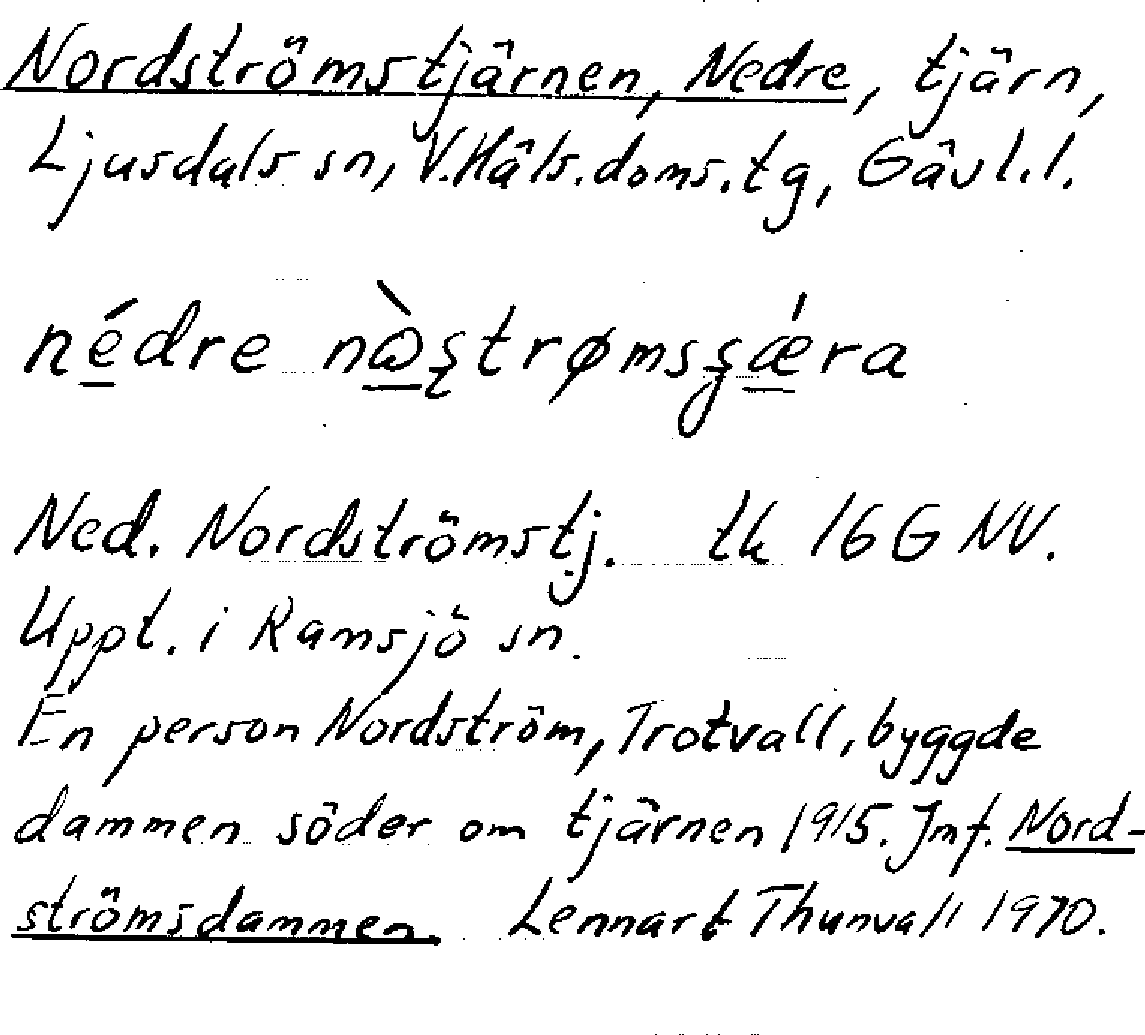 Nordströmstjärnen, Nedre, tjärn,
Ljusdals sn, V.Häls.doms.tg, Gävl.l.
nédre
Ned. Nordströmstj. tk 16 G NV.
Uppt. i Ramsjö sn.
En person Nordström, Trotvall, byggde
dammen söder om tjärnen 1915. Jmf. Nord-
strömsdammen. Lennart Thunvall 1970.